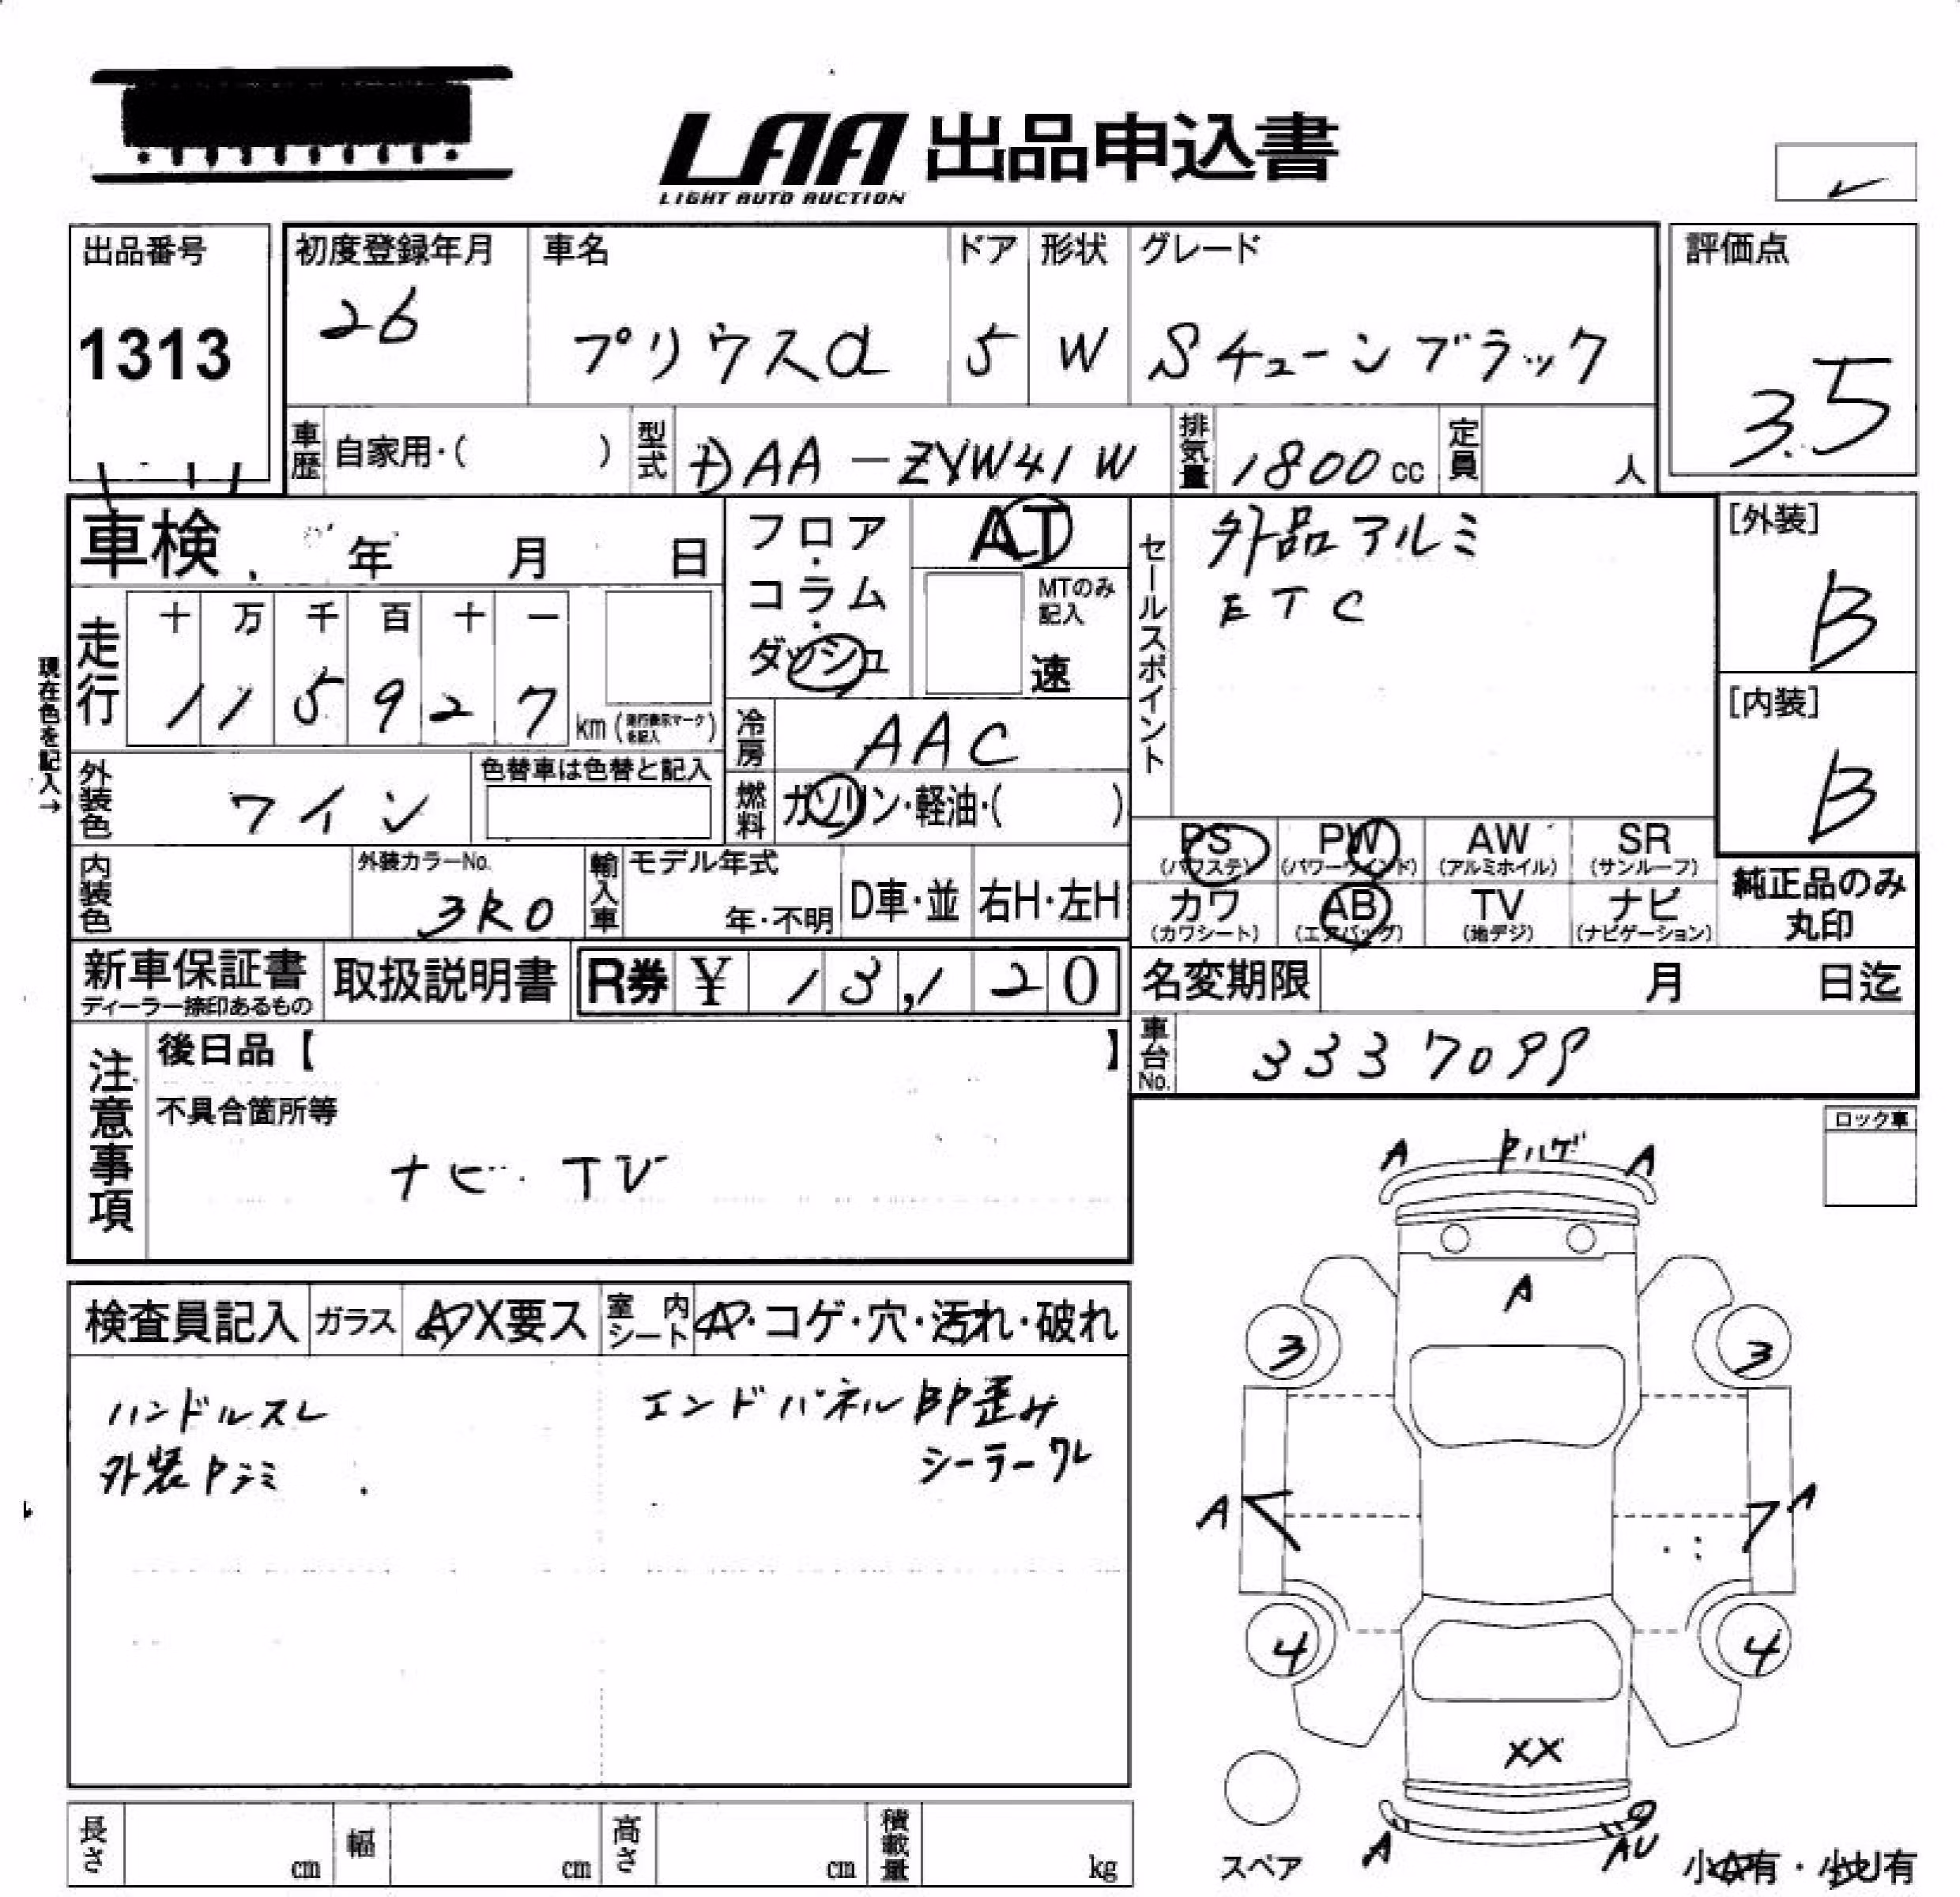 LAA 出品申込書
LIGHT AUTO AUCTION
出品番号
1313
初度登録年月
26
車名
プリウスα
ドア
5
形状
W
グレード
Sチューンブラック
評価点
3.5
車歴 自家用・( )
型式 DAA-ZVW41W
排気量 1800cc
定員 人
車検 年 月 日
走行
十 万 千 百 十 一
1 1 5 9 2 7 km (走行表示マークを記入)
現在色を記入→
外装色 ワイン
色替車は色替と記入
内装色
外装カラーNo.
3R0
輸入車
モデル年式
年・不明
D車・並
右H・左H
フロア・
コラム・
ダッシュ
AT
MTのみ記入
速
冷房 AAC
燃料 ガソリン・軽油・( )
セールスポイント
外品アルミ
ETC
[外装]
B
[内装]
B
PS
(パワステ)
PW
(パワーウインド)
AW
(アルミホイル)
SR
(サンルーフ)
カワ
(カワシート)
AB
(エアバッグ)
TV
(地デジ)
ナビ
(ナビゲーション)
純正品のみ
丸印
新車保証書
ディーラー捺印あるもの
取扱説明書
R券 ¥ 13,120
名変期限 月 日迄
車台No. 3337099
注意事項
後日品【 】
不具合箇所等
ナビ・TV
ロック車
検査員記入
ガラス
A・X要ス
室内シート
A・コゲ・穴・汚れ・破れ
ハンドルスレ
外装Pシミ
エンドパネルBP歪み
シーラーワレ
A Pハゲ A
A
3 3
A A
4 4
XX
A AU
スペア
小A有・小U有
長さ cm
幅 cm
高さ cm
積載量 kg